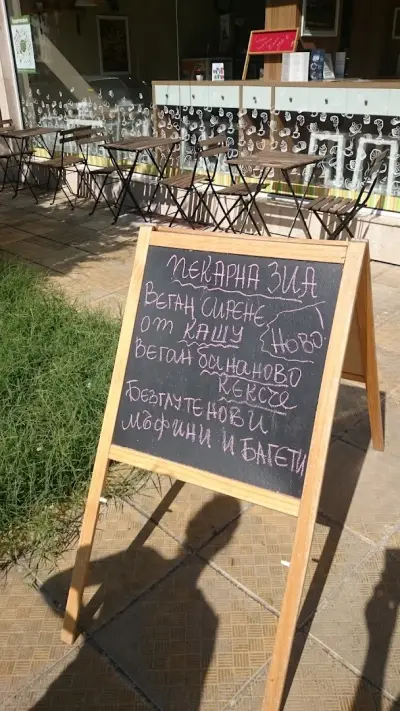 ПЕКАРНА ЗИА
ВЕГАН СИРЕНЕ
ОТ КАШУ
НОВО
ВЕГАН банАНОВО
КЕКСЧЕ
БЕЗГЛУТЕНОВИ
МЪФИНИ И БАГЕТИ